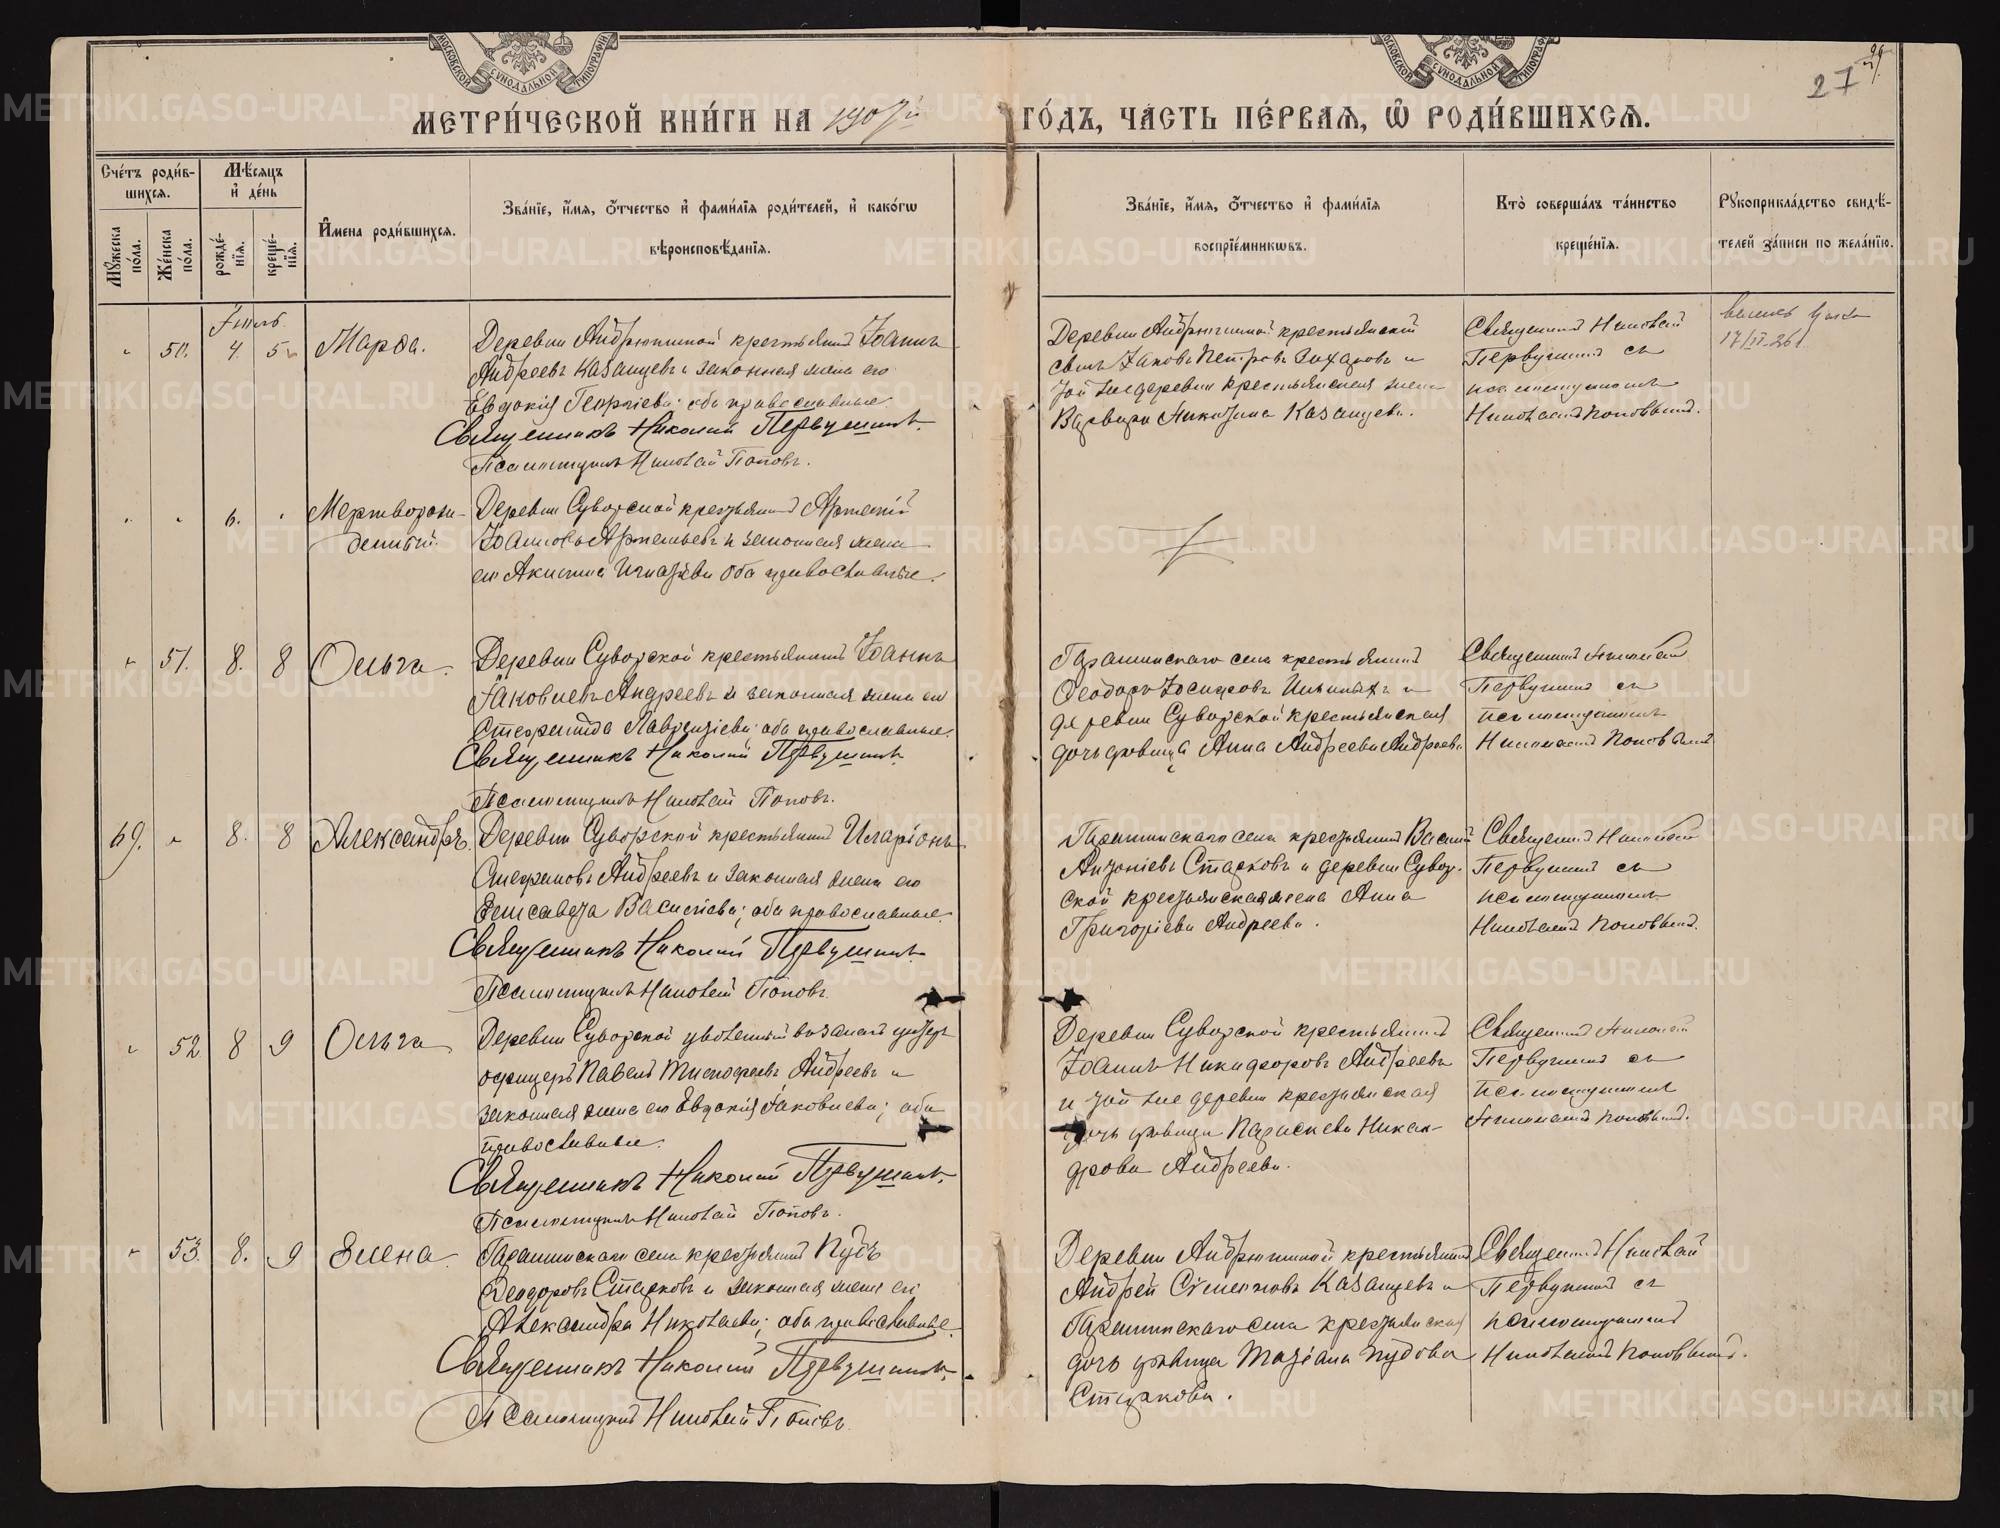 МОСКОВСКОЙ СѴНОДАЛЬНОЙ ТИПОГРАФІИ
МОСКОВСКОЙ СѴНОДАЛЬНОЙ ТИПОГРАФІИ
27
МЕТРИ́ЧЕСКОЙ КНИ́ГИ НА 1907й ГО́ДЪ, ЧА́СТЬ ПЕ́РВАѦ, Ѡ РОДИ́ВШИХСѦ.
Сче́тъ роди́в-
шихсѧ.
Мѣ́сѧцъ
и҆ де́нь
Мꙋ́жеска по́ла.
Же́нска по́ла.
рожде́-
нїѧ.
креще́-
нїѧ.
И҆мена роди́вшихсѧ.
Зва́нїе, и҆́мѧ, ѻ҆́тчество и҆ фами́лїѧ роди́телей, и҆ како́гѡ
вѣроисповѣ́данїѧ.
Зва́нїе, и҆́мѧ, ѻ҆́тчество и҆ фами́лїѧ
воспрїе́мникѡвъ.
Кто̀ соверша́лъ та́инство
креще́нїѧ.
Рꙋкоприкла́дство свидѣ́-
телей за́писи по жела́нїю.
Іюль.
50. 4. 5 Марѳа.
Деревни Андрюшиной крестьянинъ Іоаннъ
Андреевъ Казанцевъ и законная жена его
Евдокія Георгіева; оба православные.
Священникъ Николай Первушинъ.
Псаломщикъ Николай Поповъ.
Деревни Андрюшиной крестьянскій
сынъ Іаковъ Петровъ Захаровъ и
той же деревни крестьянская жена
Варвара Казанцева.
Священникъ Николай
Первушинъ съ
псаломщикомъ
Николаемъ Поповымъ.
17/II-26
6. Мертворож-
денный.
Деревни Суворской крестьянинъ Артемій
Іоанновъ Артемьевъ и законная жена
его Акилина Игнатіева оба православные.
51. 8. 8 Ольга.
Деревни Суворской крестьянинъ Іоаннъ
Іаковлевъ Андреевъ и законная жена его
Стефанида Лаврентіева; оба православные.
Священникъ Николай Первушинъ.
Псаломщикъ Николай Поповъ.
Гарашинскаго села крестьянинъ
Ѳеодоръ Іосифовъ Ильиныхъ и
деревни Суворской крестьянская
дочь дѣвица Анна Андреева Андреева
Священникъ Николай
Первушинъ съ
псаломщикомъ
Николаемъ Поповымъ
69. 8. 8 Александръ.
Деревни Суворской крестьянинъ Иларіонъ
Стефановъ Андреевъ и законная жена его
Елисавета Василіева; оба православные.
Священникъ Николай Первушинъ.
Псаломщикъ Николай Поповъ.
Гарашинскаго села крестьянинъ Василій
Антоніевъ Старковъ и деревни Сувор-
ской крестьянская жена Анна
Григоріева Андреева.
Священникъ Николай
Первушинъ съ
псаломщикомъ
Николаемъ Поповымъ.
52 8 9 Ольга
Деревни Суворской уволенный въ запасъ унтеръ
офицеръ Павелъ Тимофеевъ Андреевъ и
законная жена его Евдокія Іаковлева; оба
православные.
Священникъ Николай Первушинъ.
Псаломщикъ Николай Поповъ.
Деревни Суворской крестьянинъ
Іоаннъ Никифоровъ Андреевъ
и той же деревни крестьянская
дочь дѣвица Параскева Никан-
дрова Андреева.
Священникъ Николай
Первушинъ съ
псаломщикомъ
Николаемъ Поповымъ.
53. 8. 9 Елена.
Гарашинскаго села крестьянинъ Пудъ
Ѳеодоровъ Старковъ и законная жена его
Александра Николаева; оба православные.
Священникъ Николай Первушинъ.
Псаломщикъ Николай Поповъ
Деревни Андрюшиной крестьянинъ
Андрей Симеоновъ Казанцевъ и
Гарашинскаго села крестьянская
дочь дѣвица Татіана Пудова
Старкова.
Священникъ Николай
Первушинъ съ
псаломщикомъ
Николаемъ Поповымъ.
METRIKI.GASO-URAL.RU